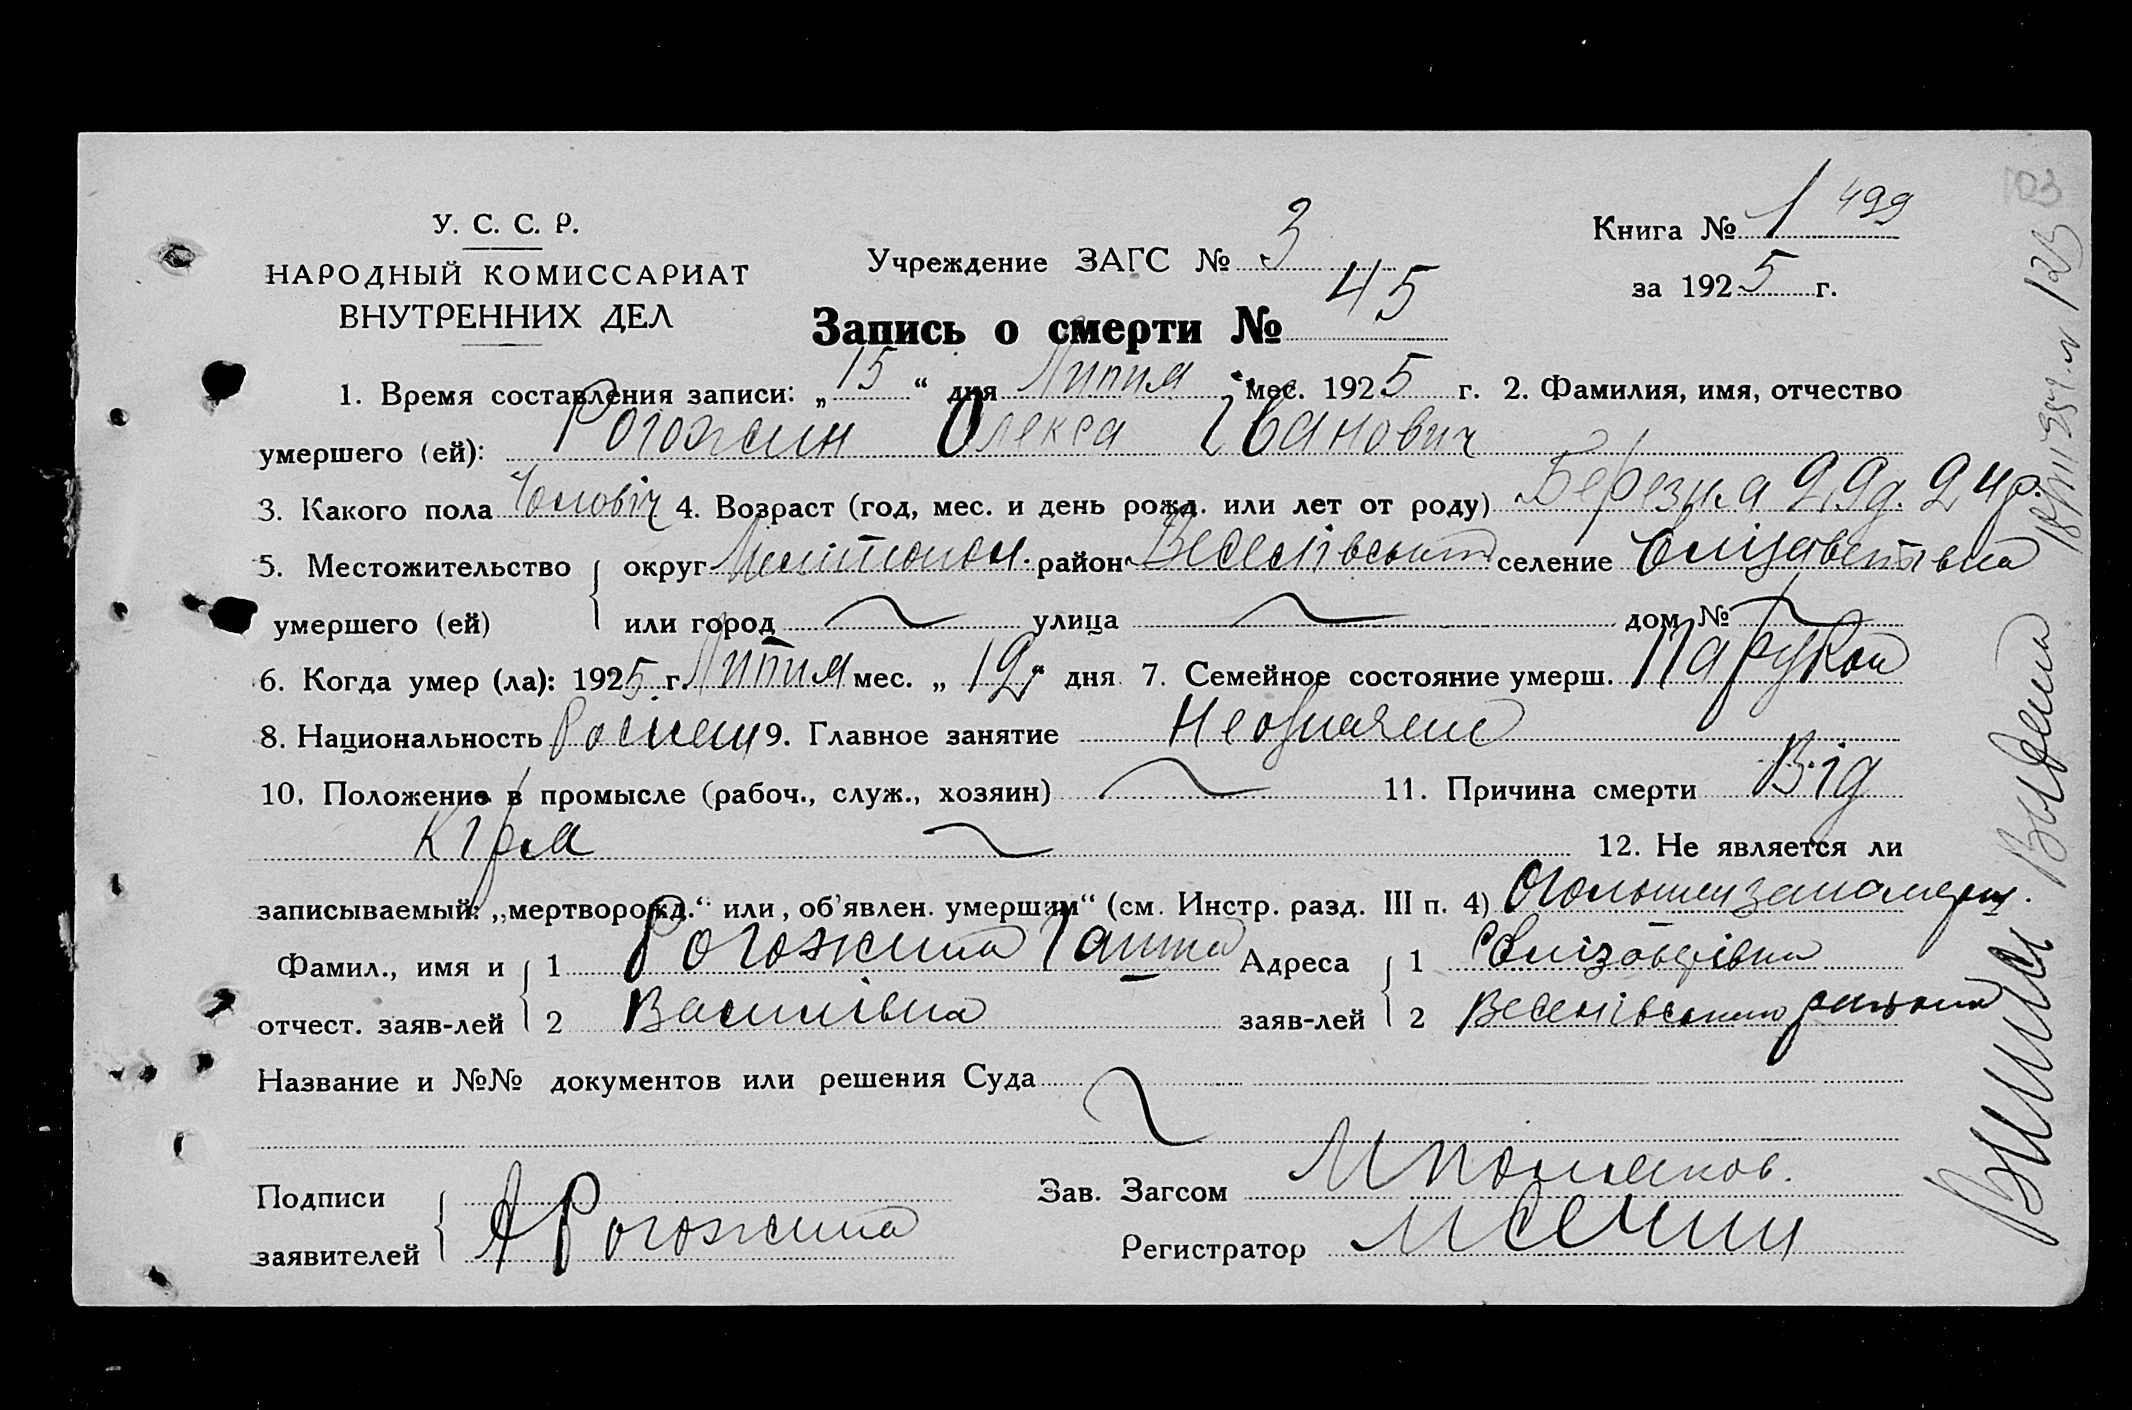 У. С. С. Р.
НАРОДНЫЙ КОМИССАРИАТ
ВНУТРЕННИХ ДЕЛ
Учреждение ЗАГС № 3
Книга № 1 499
за 1925 г.
103
Запись о смерти № 45
1. Время составления записи: „15“ дня Липня мес. 1925 г. 2. Фамилия, имя, отчество
умершего (ей): Рогожин Олекса Іванович
3. Какого пола Чоловіч 4. Возраст (год, мес. и день рожд. или лет от роду) Березня 29д. 24р.
5. Местожительство округ Мелітопол. район Веселівський селение Єлізаветівка
умершего (ей) или город улица дом №
6. Когда умер (ла): 1925 г. Липня мес. „12“ дня 7. Семейное состояние умерш. Парубок
8. Национальность Росиєць 9. Главное занятие
10. Положение в промысле (рабоч., служ., хозяин) 11. Причина смерти Від
кіря 12. Не является ли
записываемый: „мертворожд.“ или „об'явлен. умершим“ (см. Инстр. разд. III п. 4)
Фамил., имя и 1 Рогожина Ганна Адреса 1 Єлізаветівка
отчест. заяв-лей 2 Василівна заяв-лей 2 Веселівського района
Название и №№ документов или решения Суда
Подписи Зав. Загсом
заявителей А Рогожина Регистратор